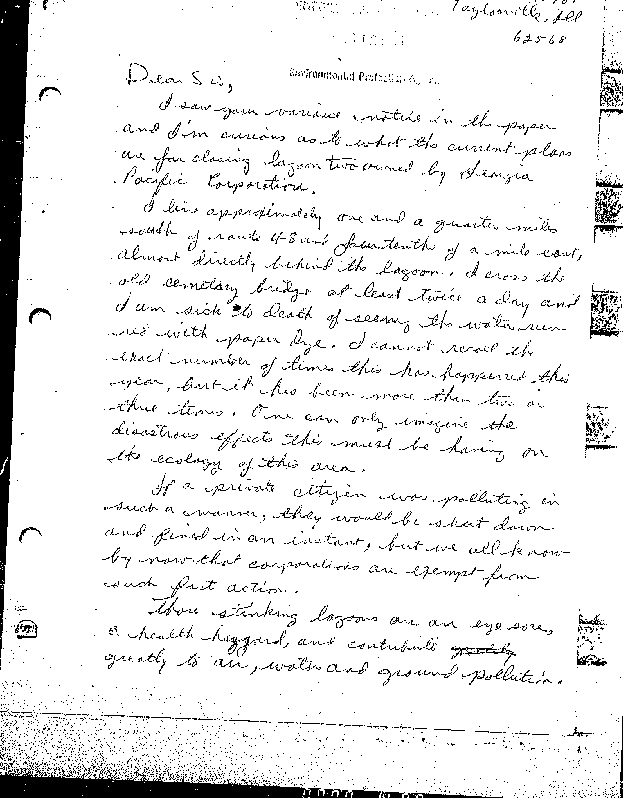 Taylorville, Ill
62568
Environmental Protection
Dear Sir,
I saw your variance notice in the paper
and I'm curious as to what the current plans
are for closing lagoon two owned by Georgia
Pacific Corporation.
I live approximately one and a quarter miles
south of route 48 and four tenth of a mile east,
almost directly behind the lagoon. I cross the
old cemetary bridge at least twice a day and
I am sick to death of seeing the water run
red with paper dye. I cannot recall the
exact number of times this has happened this
year, but it has been more than two or
three times. One can only imagine the
disastrous effects this must be having on
the ecology of this area.
If a private citizen was polluting in
such a manner, they would be shut down
and fined in an instant, but we all know
by now that corporations are exempt from
such fast action.
Those stinking lagoons are an eye sore,
a health haggard, and contribute
greatly to air, water and ground pollution.